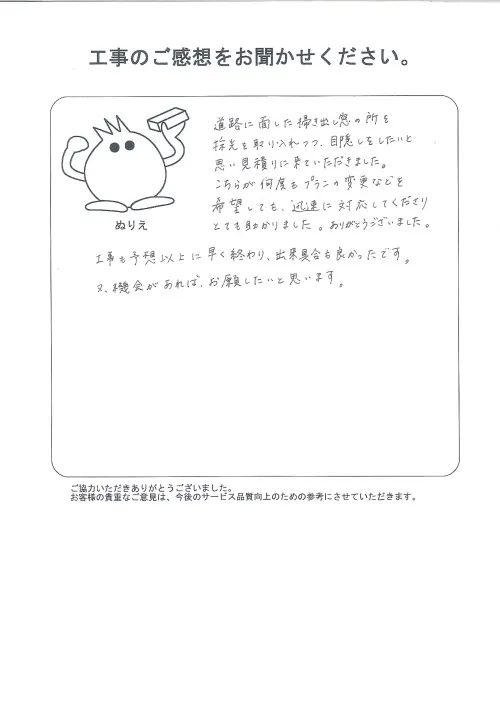 工事のご感想をお聞かせください。
道路に面した掃き出し窓の所を
採光を取り入れつつ、目隠しをしたいと
思い見積りに来ていただきました。
こちらが何度もプランの変更などを
希望しても、迅速に対応してくださり
とても助かりました。ありがとうございました。
ぬりえ
工事も予想以上に早く終わり、出来具合も良かったです。
又、機会があれば、お願したいと思います。
ご協力いただきありがとうございました。
お客様の貴重なご意見は、今後のサービス品質向上のための参考にさせていただきます。